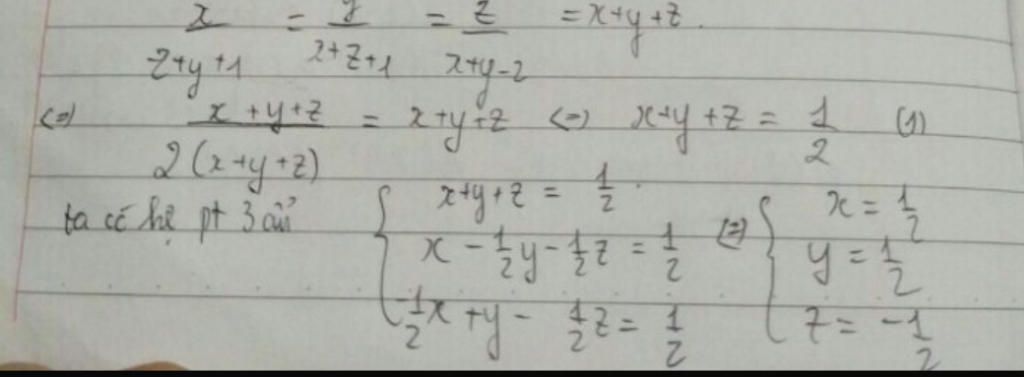 x/(z+y+1) = y/(x+z+1) = z/(x+y-2) = x+y+z.
<=> (x+y+z)/(2(x+y+z)) = x+y+z <=> x+y+z = 1/2 (1)
ta có hệ pt 3 ẩn
{ x+y+z = 1/2.
x - 1/2y - 1/2z = 1/2
-1/2x + y - 1/2z = 1/2
(=) { x = 1/2
y = 1/2
z = -1/2